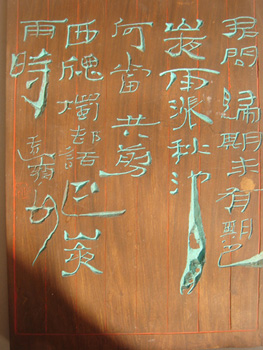 君問歸期未有期巴
山夜雨漲秋池
何當共剪
西牕燭却話巴山夜
雨時